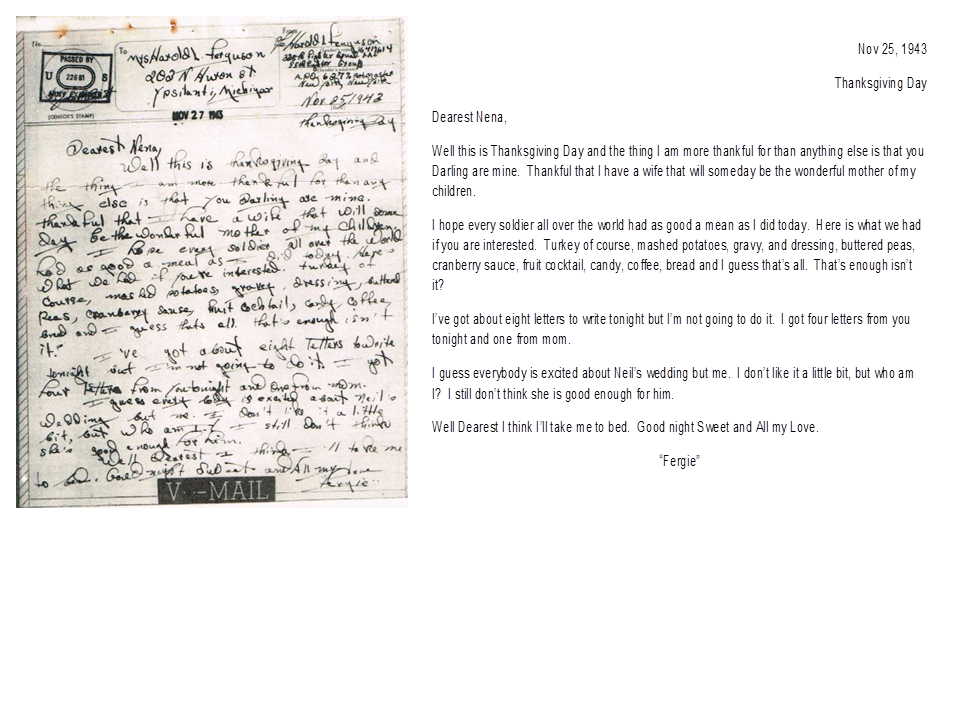 To
From
PASSED BY
U S
22681
ARMY EXAMINER
(CENSOR'S STAMP)
Mrs Harold L Ferguson
202 N Huron st
Ypsilanti, Michigan
NOV 27 1943
Harold L Ferguson
New York, New York
Nov 25/1943
thanksgiving Day
Dearest Nena,
Well this is thanksgiving day and
the thing I am more thankful for than any
thing else is that you Darling are mine.
thankful that I have a wife that will some
day be the wonderful mother of my children.
I hope every soldier all over the world
had as good a meal as I did today. here's
what we had if you're interested. turkey of
course, mashed potatoes, gravey, dressing, buttered
peas, cranberry sause, fruit cocktail, candy, coffee,
bread and I guess thats all. that's enough isn't
it?
I've got about eight letters to write
tonight but I'm not going to do it. I got
four letters from you tonight and one from mom.
I guess every body is excited about Neil's
wedding but me. I don't like it a little
bit, but who am I? I still don't think
she's good enough for him.
Well Dearest I think I'll take me
to bed. Good night Sweet and All my love
"Fergie"
V···-MAIL
Nov 25, 1943
Thanksgiving Day
Dearest Nena,
Well this is Thanksgiving Day and the thing I am more thankful for than anything else is that you
Darling are mine. Thankful that I have a wife that will someday be the wonderful mother of my
children.
I hope every soldier all over the world had as good a mean as I did today. Here is what we had
if you are interested. Turkey of course, mashed potatoes, gravy, and dressing, buttered peas,
cranberry sauce, fruit cocktail, candy, coffee, bread and I guess that's all. That's enough isn't
it?
I've got about eight letters to write tonight but I'm not going to do it. I got four letters from you
tonight and one from mom.
I guess everybody is excited about Neil's wedding but me. I don't like it a little bit, but who am
I? I still don't think she is good enough for him.
Well Dearest I think I'll take me to bed. Good night Sweet and All my Love.
"Fergie"